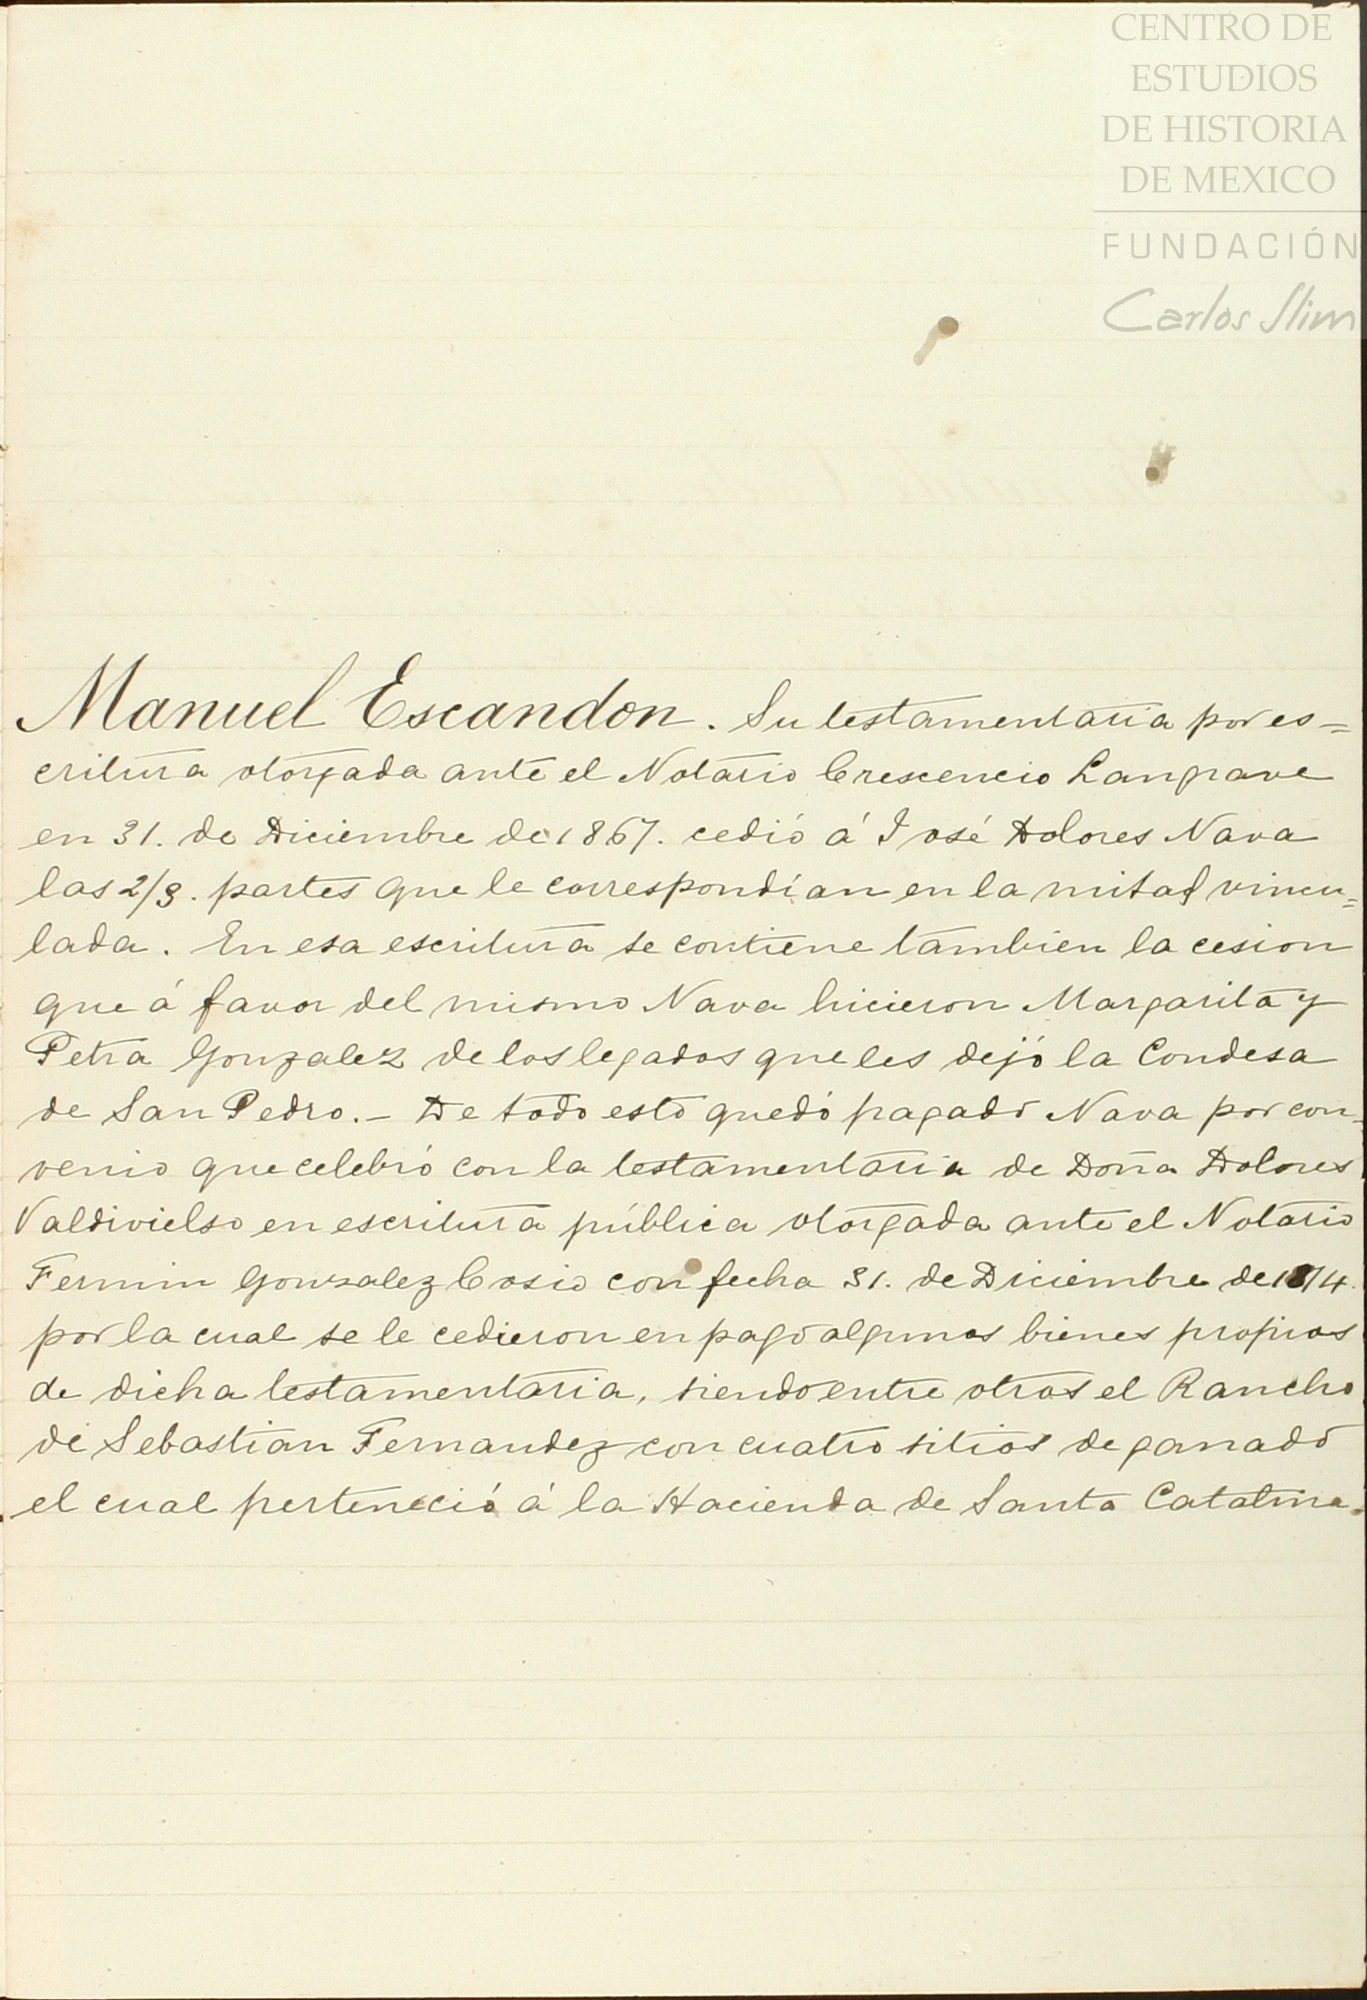 CENTRO DE
ESTUDIOS
DE HISTORIA
DE MEXICO
FUNDACIÓN
Carlos Slim
Manuel Escandon. Su testamentaria por es=
critura otorgada ante el Notario Crescencio Langrave
en 31. de Diciembre de 1867. cedió á José Dolores Nava
las 2/3. partes que le correspondían en la mitad vincu=
lada. En esa escritura se contiene tambien la cesion
que á favor del mismo Nava hicieron Margarita y
Petra Gonzalez de los legados que les dejó la Condesa
de San Pedro.- De todo esto quedó pagado Nava por con=
venio que celebró con la testamentaria de Doña Dolores
Valdivielso en escritura pública otorgada ante el Notario
Fermin Gonzalez Cosio con fecha 31. de Diciembre de 1874.
por la cual se le cedieron en pago algunos bienes propios
de dicha testamentaria, siendo entre otros el Rancho
de Sebastian Fernandez con cuatro sitios de ganado
el cual perteneció á la Hacienda de Santa Catalina.